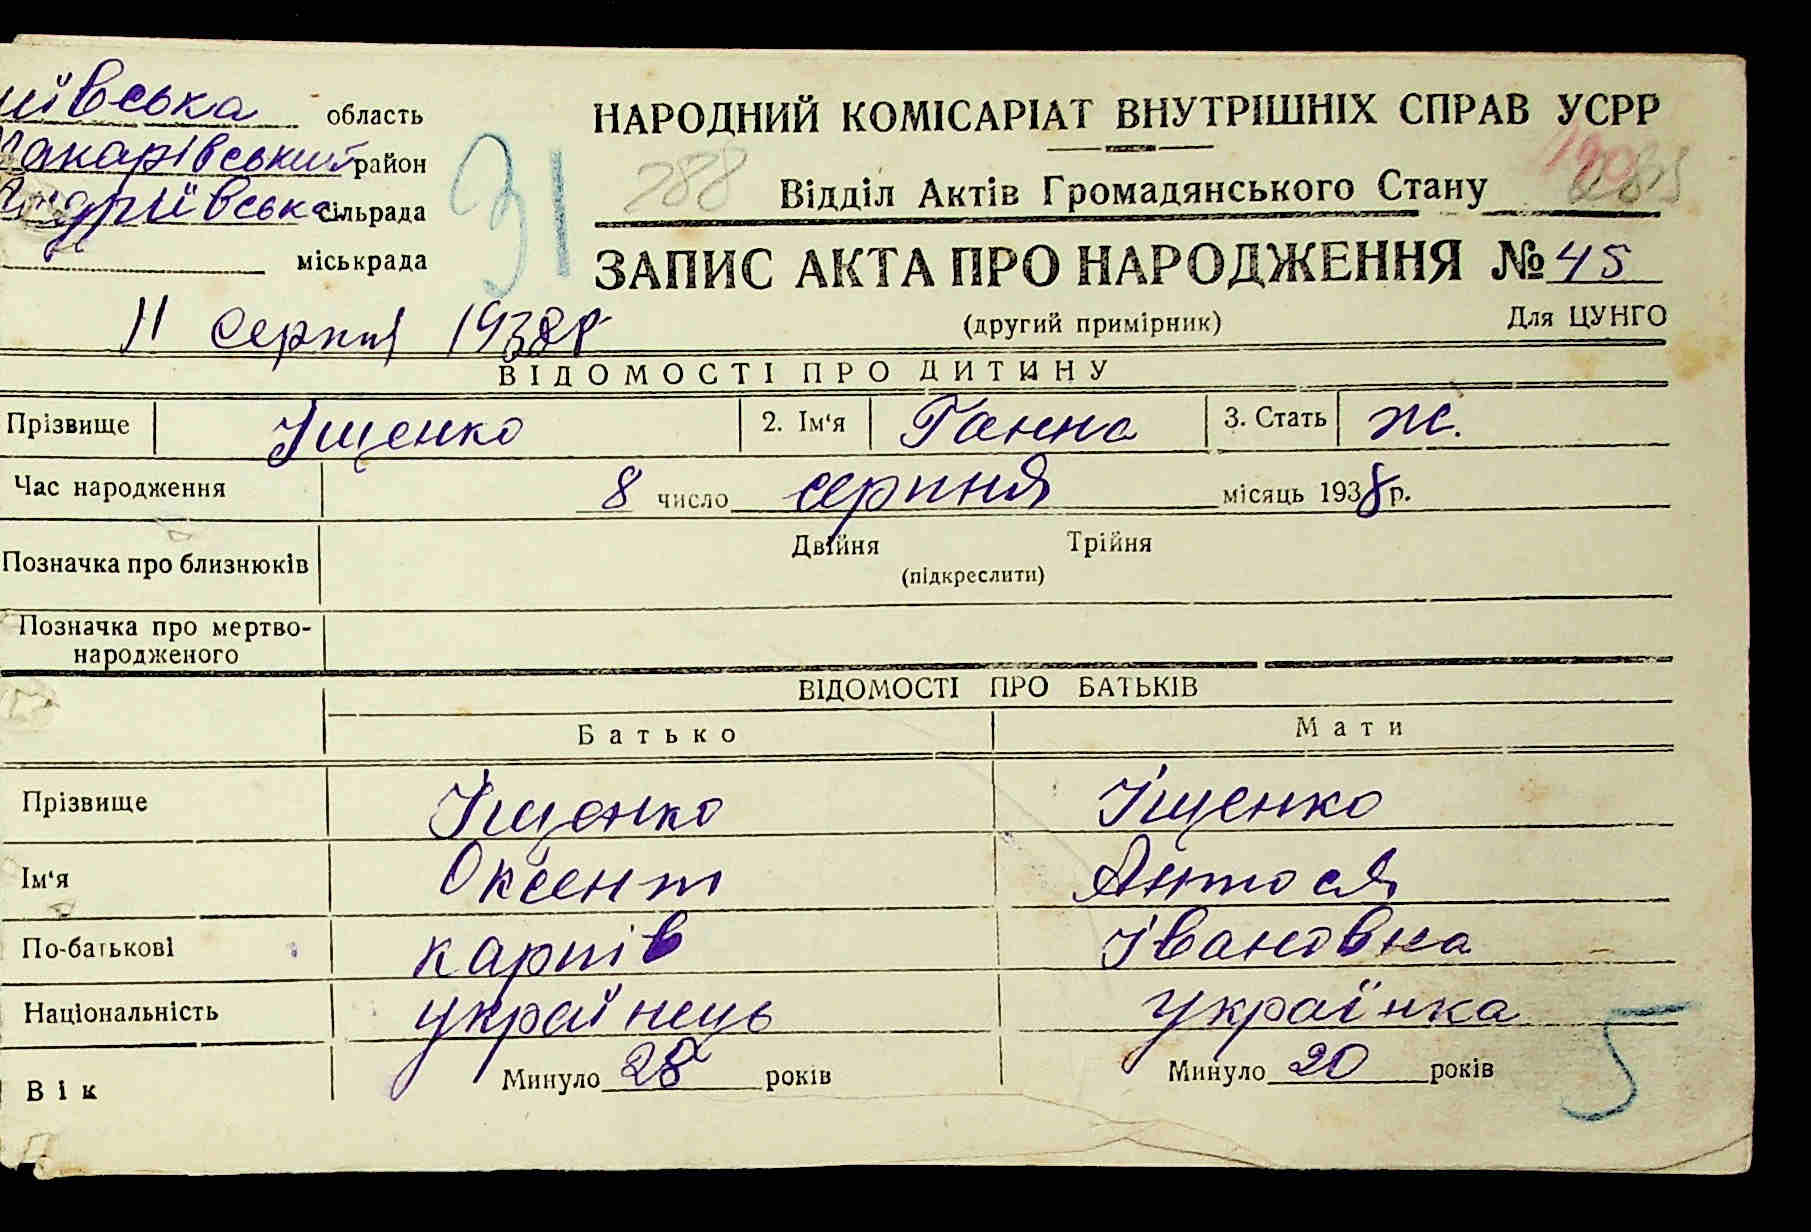 иївська область
Макарівський район
Андріївська сільрада
міськрада
31
288
НАРОДНИЙ КОМІСАРІАТ ВНУТРІШНІХ СПРАВ УСРР
Відділ Актів Громадянського Стану
ЗАПИС АКТА ПРО НАРОДЖЕННЯ № 45
11 серпня 1938 р
(другий примірник) Для ЦУНГО
ВІДОМОСТІ ПРО ДИТИНУ
Прізвище Іщенко 2. Ім'я Ганна 3. Стать Ж.
Час народження 8 число серпня місяць 1938 р.
Позначка про близнюків Двійня Трійня
(підкреслити)
Позначка про мертво-
народженого
ВІДОМОСТІ ПРО БАТЬКІВ
Батько Мати
Прізвище Іщенко Іщенко
Ім'я Оксент Антося
По-батькові карпів Івановна
Національність українець українка
Вік Минуло 28 років Минуло 20 років
5